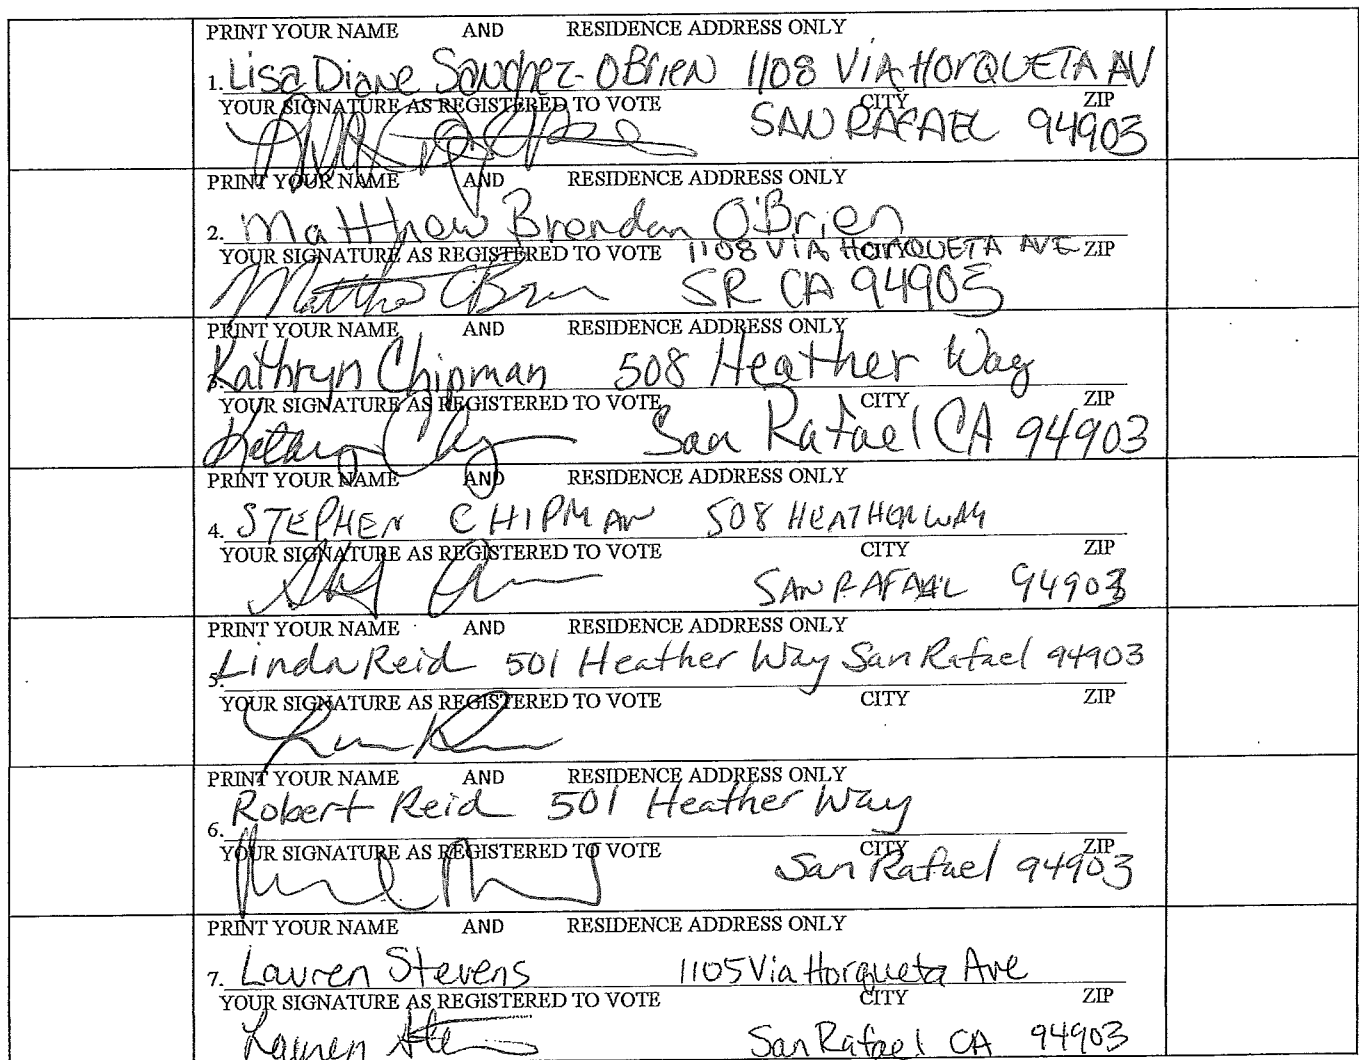 PRINT YOUR NAME AND RESIDENCE ADDRESS ONLY
1. Lisa Diane Sanchez-OBrien 1108 VIA HORQUETA AV
YOUR SIGNATURE AS REGISTERED TO VOTE CITY ZIP
SAN RAFAEL 94903
PRINT YOUR NAME AND RESIDENCE ADDRESS ONLY
2. Matthew Brendan O'Brien
YOUR SIGNATURE AS REGISTERED TO VOTE 1108 VIA HORQUETA AVE ZIP
Matthew OBrien SR CA 94903
PRINT YOUR NAME AND RESIDENCE ADDRESS ONLY
3. Kathryn Chipman 508 Heather Way
YOUR SIGNATURE AS REGISTERED TO VOTE CITY ZIP
San Rafael CA 94903
PRINT YOUR NAME AND RESIDENCE ADDRESS ONLY
4. STEPHEN CHIPMAN 508 HEATHER WAY
YOUR SIGNATURE AS REGISTERED TO VOTE CITY ZIP
SAN RAFAEL 94903
PRINT YOUR NAME AND RESIDENCE ADDRESS ONLY
5. Linda Reid 501 Heather Way San Rafael 94903
YOUR SIGNATURE AS REGISTERED TO VOTE CITY ZIP
PRINT YOUR NAME AND RESIDENCE ADDRESS ONLY
6. Robert Reid 501 Heather Way
YOUR SIGNATURE AS REGISTERED TO VOTE CITY ZIP
San Rafael 94903
PRINT YOUR NAME AND RESIDENCE ADDRESS ONLY
7. Lauren Stevens 1105 Via Horqueta Ave
YOUR SIGNATURE AS REGISTERED TO VOTE CITY ZIP
Lauren San Rafael CA 94903